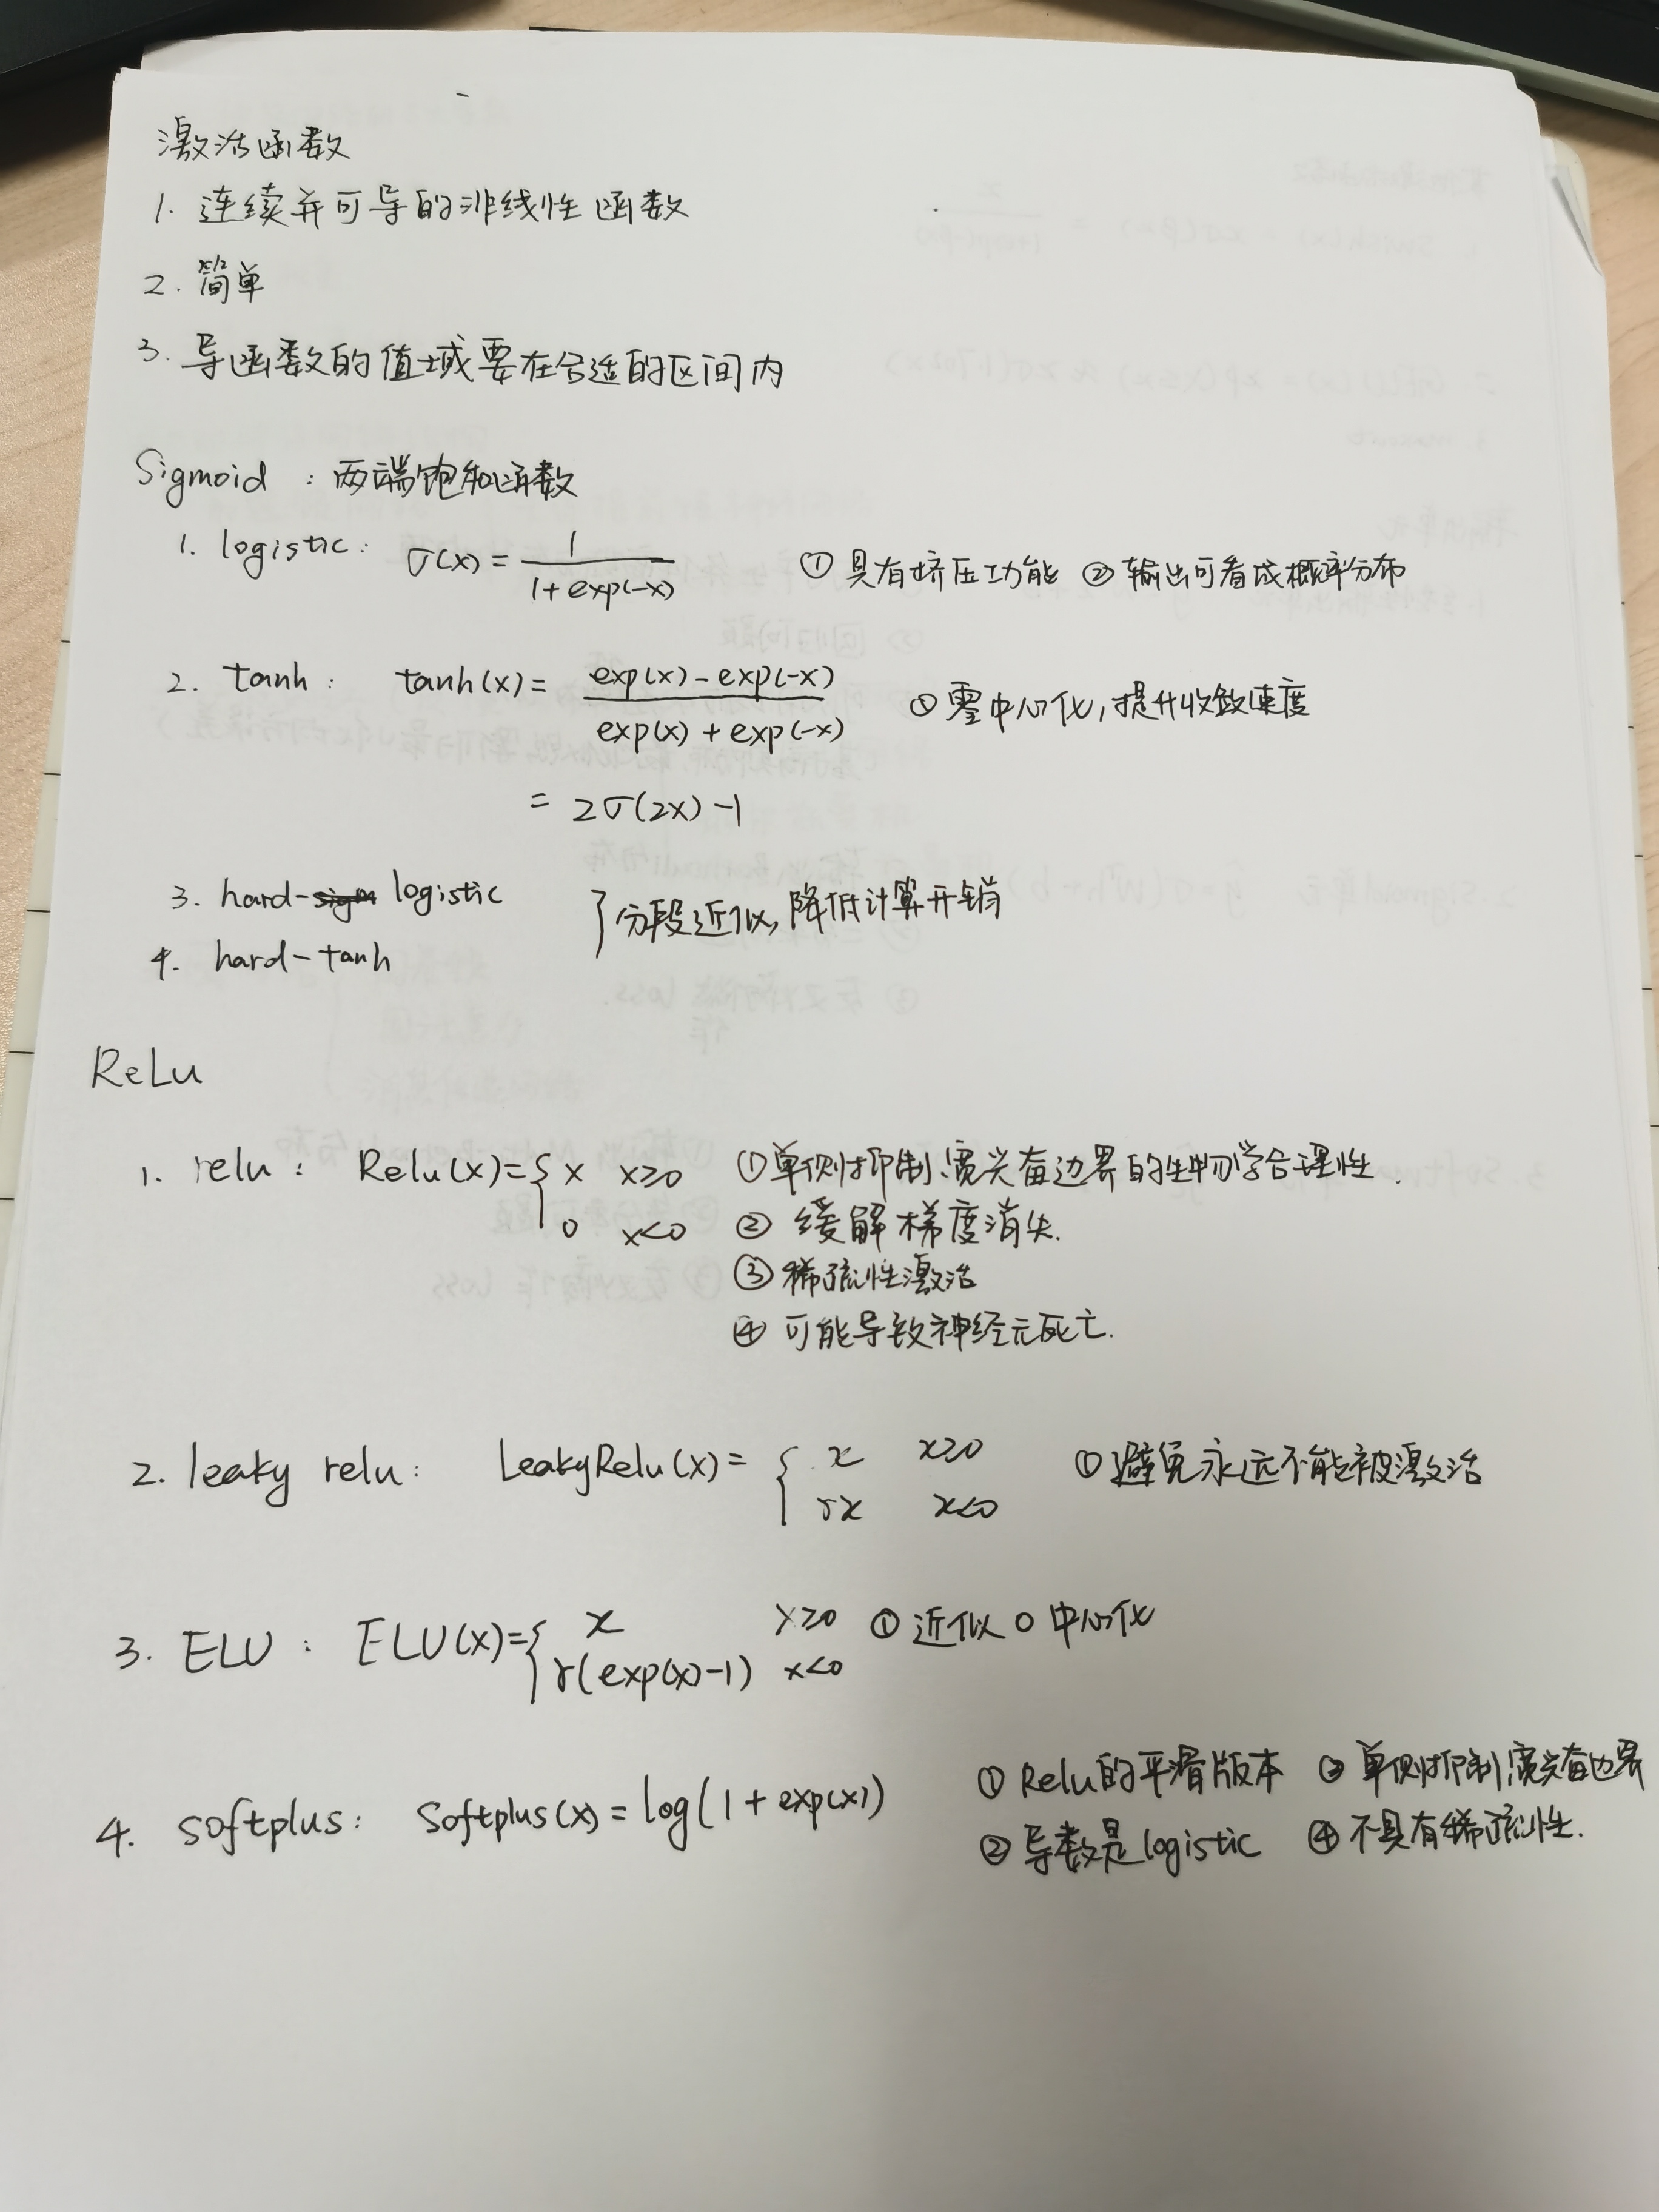 激活函数
1. 连续并可导的非线性函数
2. 简单
3. 导函数的值域要在合适的区间内
Sigmoid : 两端饱和函数
1. logistic: σ(x) = 1 / (1 + exp(-x)) ① 具有挤压功能 ② 输出可看成概率分布
2. tanh : tanh(x) = (exp(x) - exp(-x)) / (exp(x) + exp(-x)) ① 零中心化,提升收敛速度
= 2σ(2x) - 1
3. hard-logistic } 分段近似,降低计算开销
4. hard-tanh
ReLu
1. relu : Relu(x) = { x x≥0 ① 单侧抑制,宽兴奋边界的生物学合理性.
0 x<0 ② 缓解梯度消失.
③ 稀疏性激活
④ 可能导致神经元死亡.
2. leaky relu : LeakyRelu(x) = { x x≥0 ① 避免永远不能被激活
γx x<0
3. ELU : ELU(x) = { x x≥0 ① 近似0中心化
γ(exp(x)-1) x<0
4. softplus : Softplus(x) = log(1 + exp(x)) ① Relu的平滑版本 ③ 单侧抑制,宽兴奋边界
② 导数是logistic ④ 不具有稀疏性.